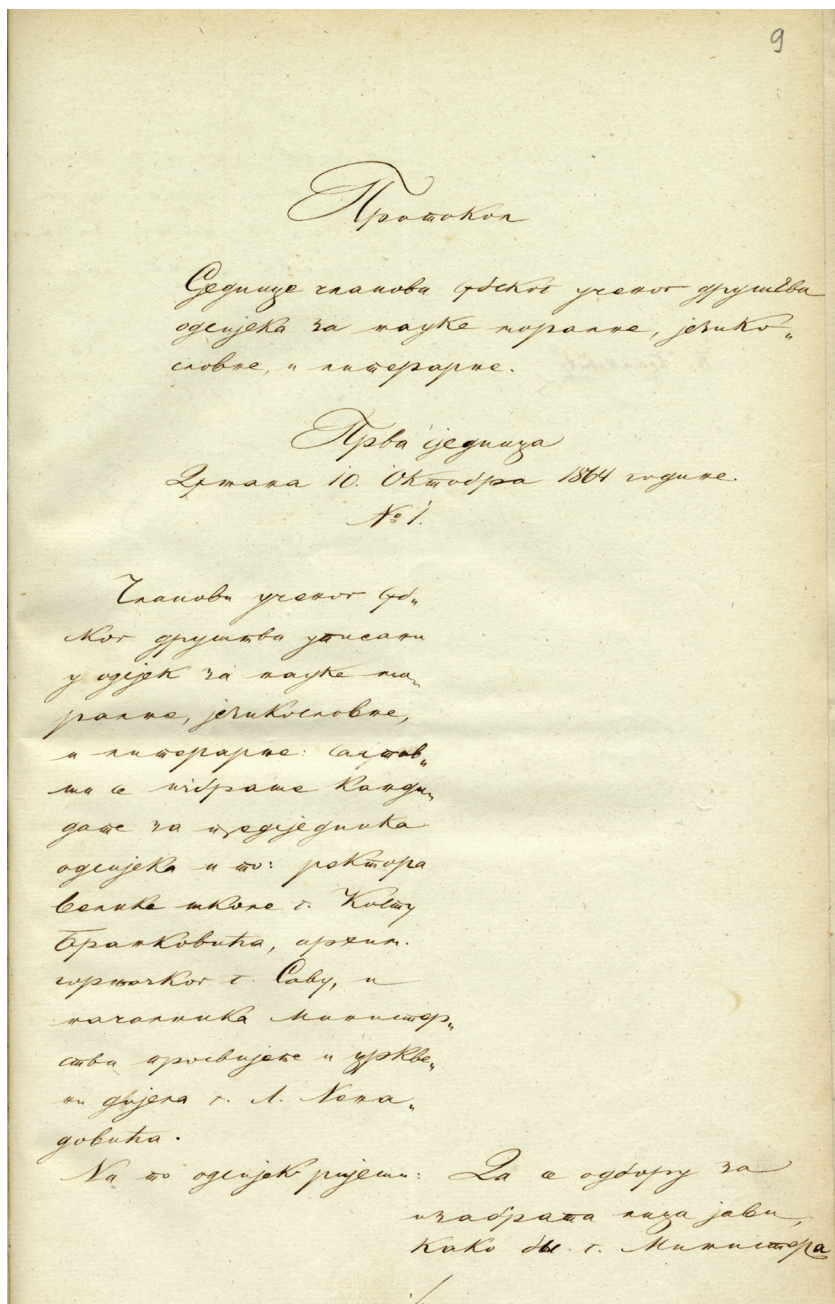 9
Протокол
Сједнице чланова србског ученог друштва
одсијека за науке моралне, језико„
словне, и литерарне.
Прва сједница
Држана 10. Октобра 1864 године.
№ 1.
Чланови ученог срб„
ског друштва уписани
у одсјек за науке мо„
ралне, језикословне,
и литерарне: саставв„
ши се избраше канди„
дате за предсједника
одсијека и то: ректора
велике школе г. Косту
Бранковића, архим.
горњачког г. Саву, и
началника Министер„
ства просвијете и цркве„
ни дијела г. Л. Нена„
довића.
На то одсијек ријеши: Да се одбору за
изабрата лица јави,
како бы г. Министра